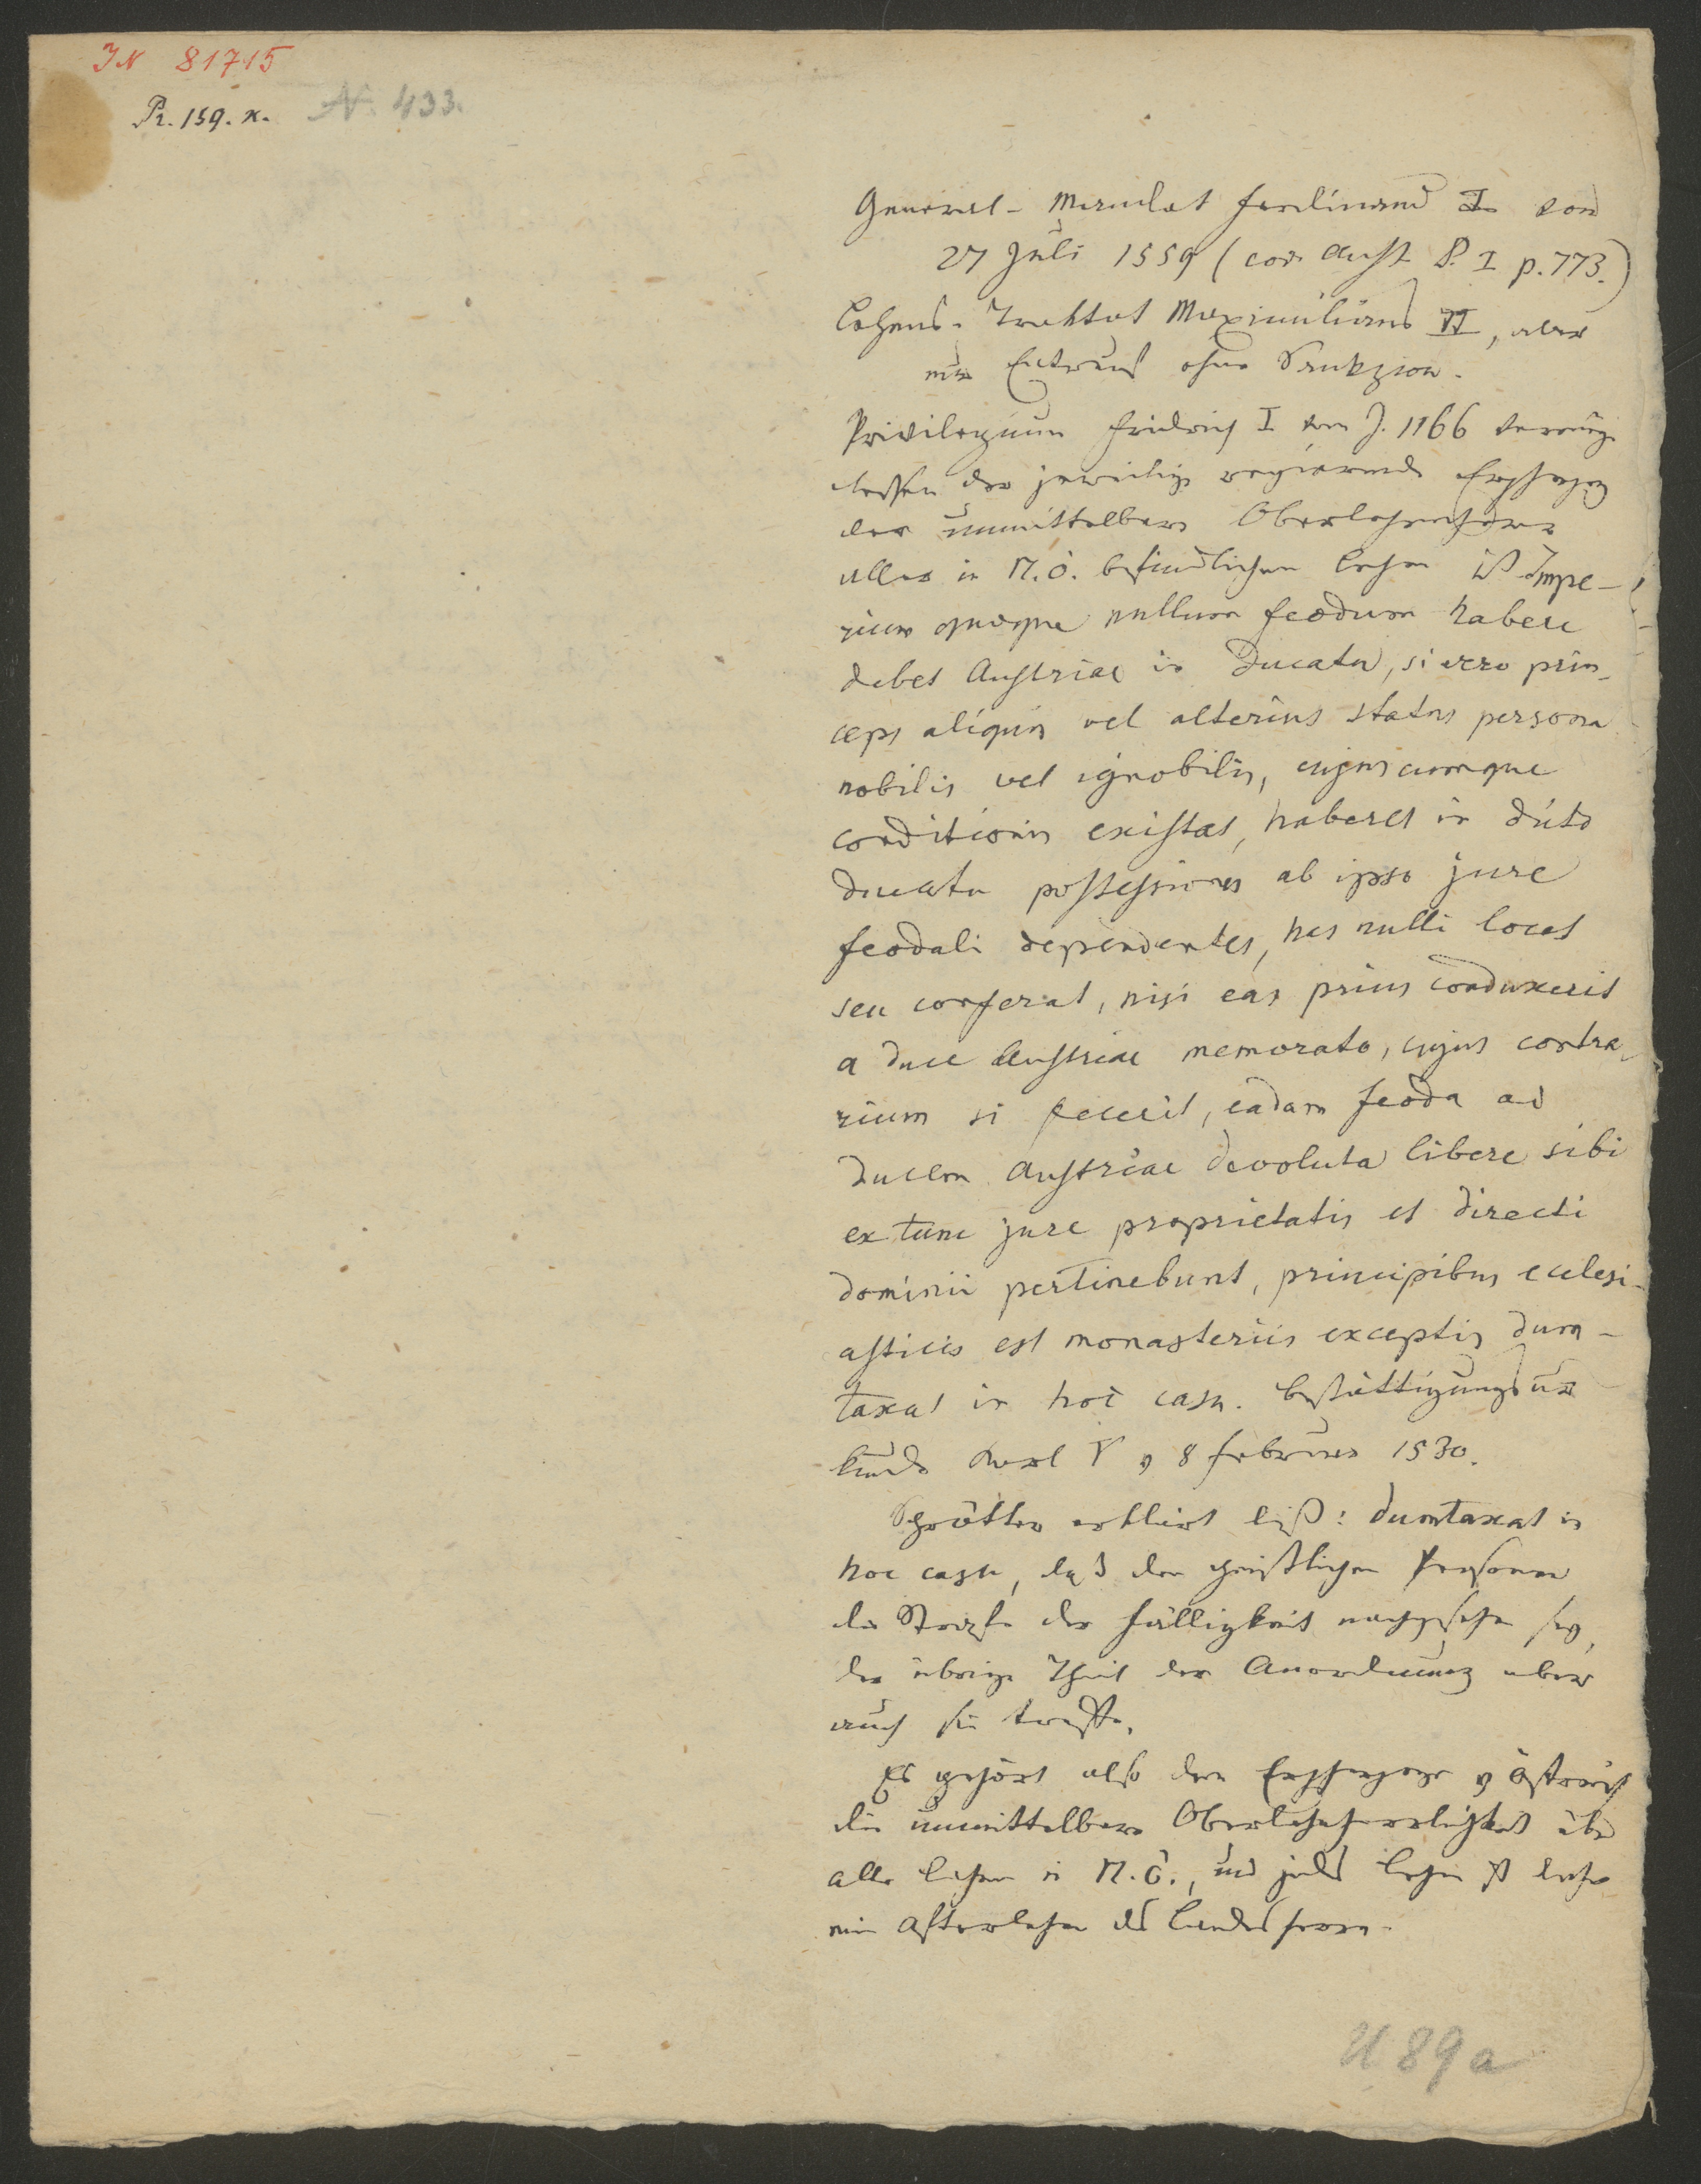 IN 81715
Pr. 159. x. N. 433.
General-Mandat Ferdinand I von
27 Juli 1559 (cod. Aust. P. I p. 773.)
Lehens-Traktat Maximilians II, aber
nur Entwurf ohne Sankzion.
Privilegium Fridrich I vom J. 1166 vermög
dessen der jeweilige regierende Erzherzog
der unmittelbare Oberlehensherr
aller in N.Ö. befindlichen Lehen ist Impe-
rium quoque nullum feodum habere
debet Austriae in Ducatu, si vero prin-
ceps aliquis vel alterius status persona
nobilis vel ignobilis, cujuscumque
conditionis existat, haberet in dicto
ducatu possessiones ab ipso jure
feodali dependentes, has nulli locet
seu conferat, nisi eas prius conduxerit
a duce Austriae memorato, cujus contra-
rium si fecerit, eadem feoda ad
ducem Austriae devoluta libere sibi
ex tunc jure proprietatis et directi
dominii pertinebunt, principibus ecclesi-
asticis et monasteriis exceptis dun-
taxat in hoc casu. Bestättigungsur
kunde Karl V v 8 Februar 1530.
Schrötter erklärt dieß: dumtaxat in
hoc casu, daß den geistlichen Personen
die Strafe der Fälligkeit nachgesehen sey,
der übrige Theil der Anordnung aber
auch sie treffe.
Es gehört also dem Erzherzoge v Österreich
die unmittelbare Oberlehensherrlichkeit über
alle Lehen in N.Ö., und jedes Lehen ist
ein Afterlehen des Landesherrn.
U 89a